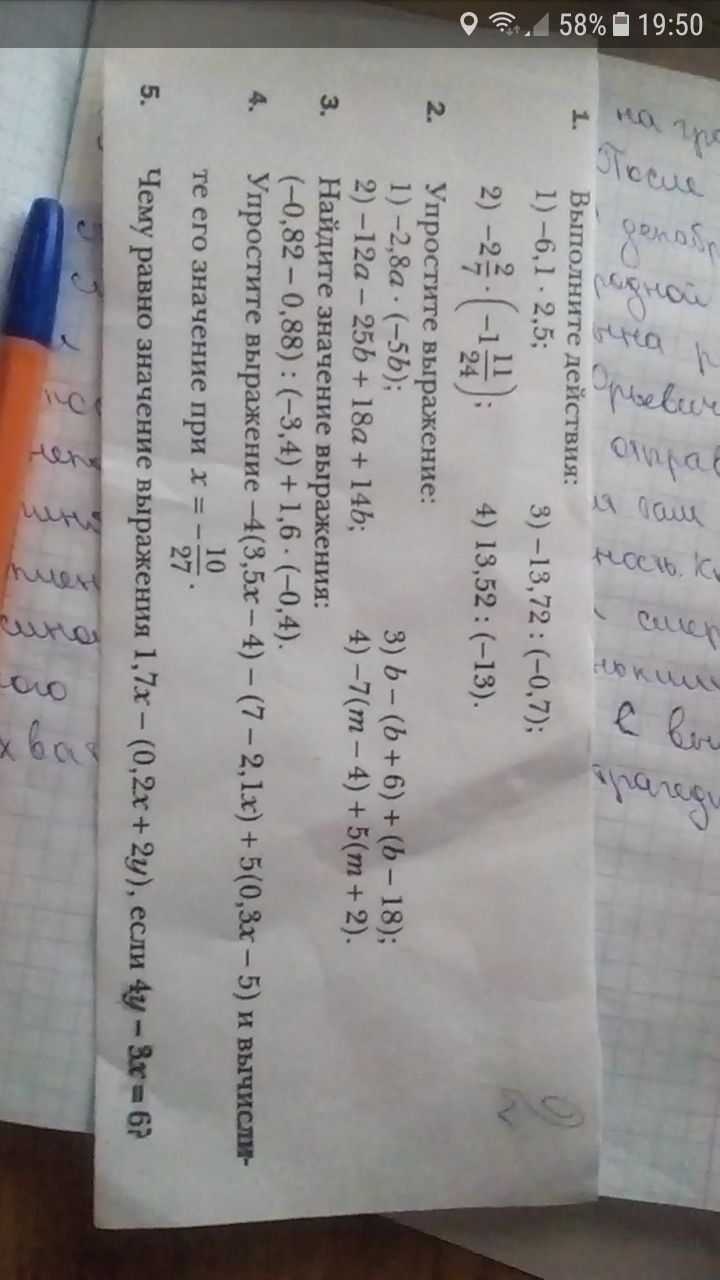 58% 19:50
1. Выполните действия:
1) −6,1 · 2,5; 3) −13,72 : (−0,7);
2) −2 2/7 · (−1 11/24); 4) 13,52 : (−13).
2. Упростите выражение:
1) −2,8a · (−5b); 3) b − (b + 6) + (b − 18);
2) −12a − 25b + 18a + 14b; 4) −7(m − 4) + 5(m + 2).
3. Найдите значение выражения:
(−0,82 − 0,88) : (−3,4) + 1,6 · (−0,4).
4. Упростите выражение −4(3,5x − 4) − (7 − 2,1x) + 5(0,3x − 5) и вычисли-
те его значение при x = −10/27.
5. Чему равно значение выражения 1,7x − (0,2x + 2y), если 4y − 3x = 6?
2
на
После
родной
отправ
сам
ность.
в